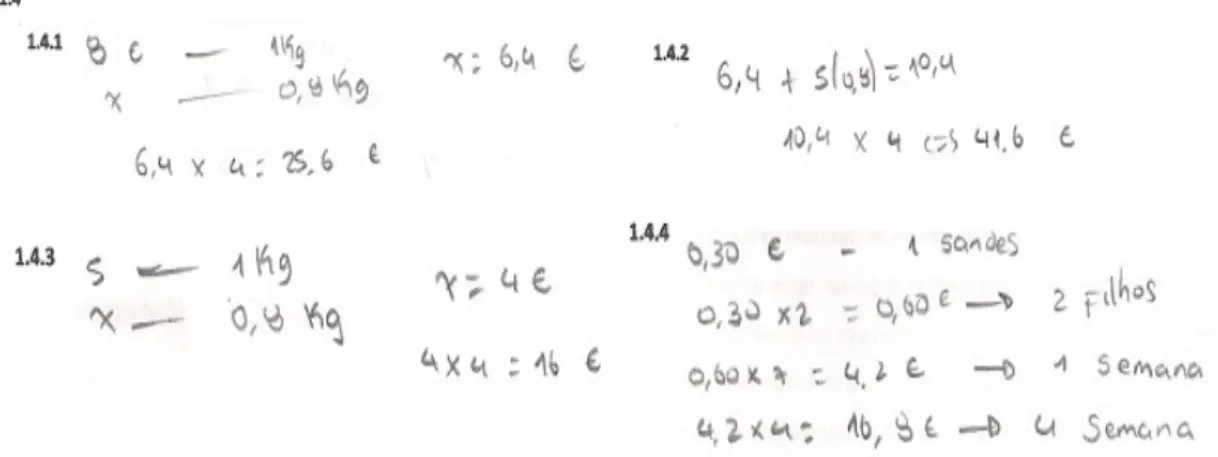 1.4
1.4.1
8 € — 1Kg
x — 0,8 Kg
x = 6,4 €
6,4 x 4 = 25,6 €
1.4.2
6,4 + 5(0,8) = 10,4
10,4 x 4 <=> 41,6 €
1.4.3
5 — 1 Kg
x — 0,8 Kg
x = 4 €
4 x 4 = 16 €
1.4.4
0,30 € - 1 sandes
0,30 x2 = 0,60 € → 2 Filhos
0,60 x 7 = 4,2 € → 1 Semana
4,2 x 4 = 16,8 € → 4 Semana